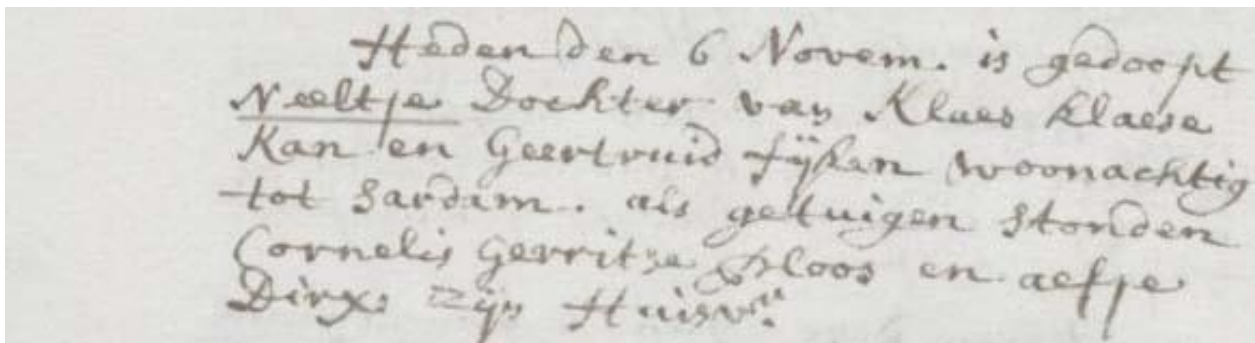 Heden den 6 Novem. is gedoopt
Neeltje Dochter van Klaes Klaese
Kan en Geertruid Fijken woonachtig
tot Sardam. als getuigen stonden
Cornelis Gerritze Ploos en aefje
Dirx zijn Huisvr.